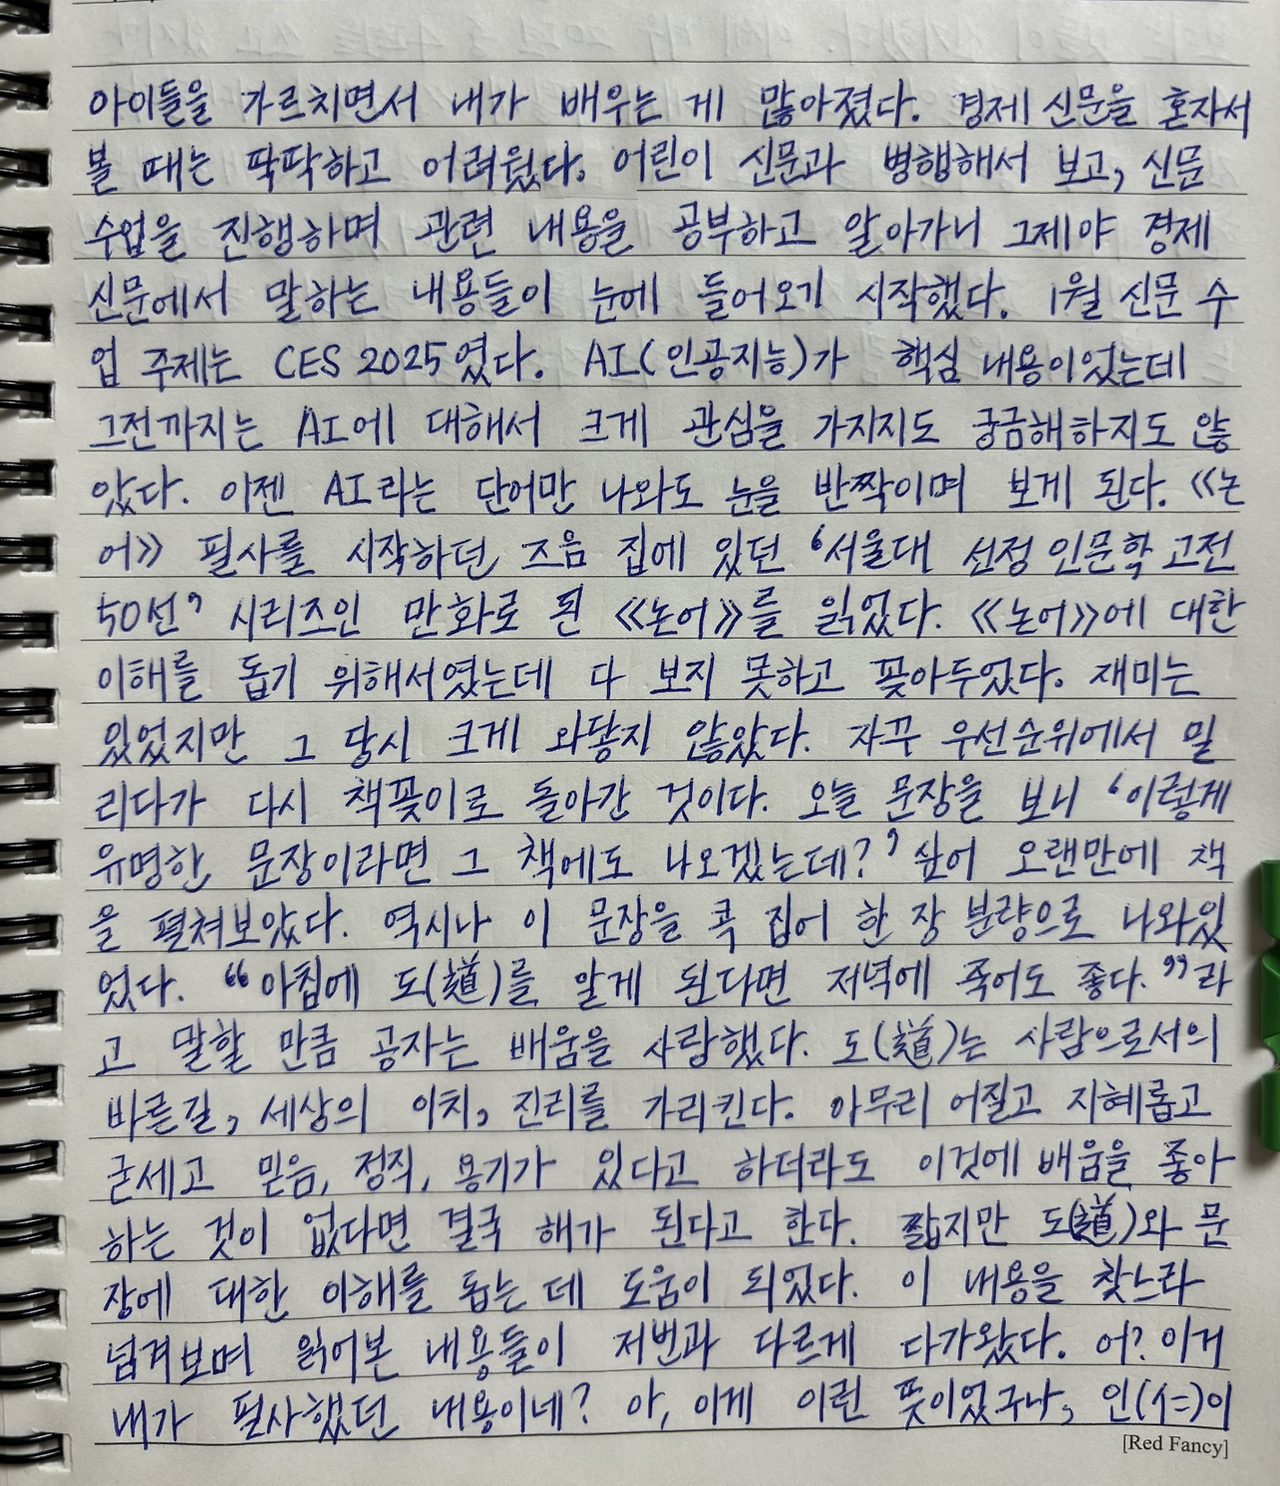 아이들을 가르치면서 내가 배우는 게 많아졌다. 경제 신문을 혼자서
볼 때는 딱딱하고 어려웠다. 어린이 신문과 병행해서 보고, 신문
수업을 진행하며 관련 내용을 공부하고 알아가니 그제야 경제
신문에서 말하는 내용들이 눈에 들어오기 시작했다. 1월 신문 수
업 주제는 CES 2025였다. AI(인공지능)가 핵심 내용이었는데
그전까지는 AI에 대해서 크게 관심을 가지지도 궁금해하지도 않
았다. 이젠 AI라는 단어만 나와도 눈을 반짝이며 보게 된다. 《논
어》 필사를 시작하던 즈음 집에 있던 '서울대 선정 인문학 고전
50선' 시리즈인 만화로 된 《논어》를 읽었다. 《논어》에 대한
이해를 돕기 위해서였는데 다 보지 못하고 꽂아두었다. 재미는
있었지만 그 당시 크게 와닿지 않았다. 자꾸 우선순위에서 밀
리다가 다시 책꽂이로 돌아간 것이다. 오늘 문장을 보니 '이렇게
유명한 문장이라면 그 책에도 나오겠는데?' 싶어 오랜만에 책
을 펼쳐보았다. 역시나 이 문장을 콕 집어 한 장 분량으로 나와있
었다. "아침에 도(道)를 알게 된다면 저녁에 죽어도 좋다."라
고 말할 만큼 공자는 배움을 사랑했다. 도(道)는 사람으로서의
바른길, 세상의 이치, 진리를 가리킨다. 아무리 어질고 지혜롭고
굳세고 믿음, 정직, 용기가 있다고 하더라도 이것에 배움을 좋아
하는 것이 없다면 결국 해가 된다고 한다. 짧지만 도(道)와 문
장에 대한 이해를 돕는 데 도움이 되었다. 이 내용을 찾느라
넘겨보며 읽어본 내용들이 저번과 다르게 다가왔다. 어? 이거
내가 필사했던 내용이네? 아, 이게 이런 뜻이었구나, 인(仁)이
[Red Fancy]